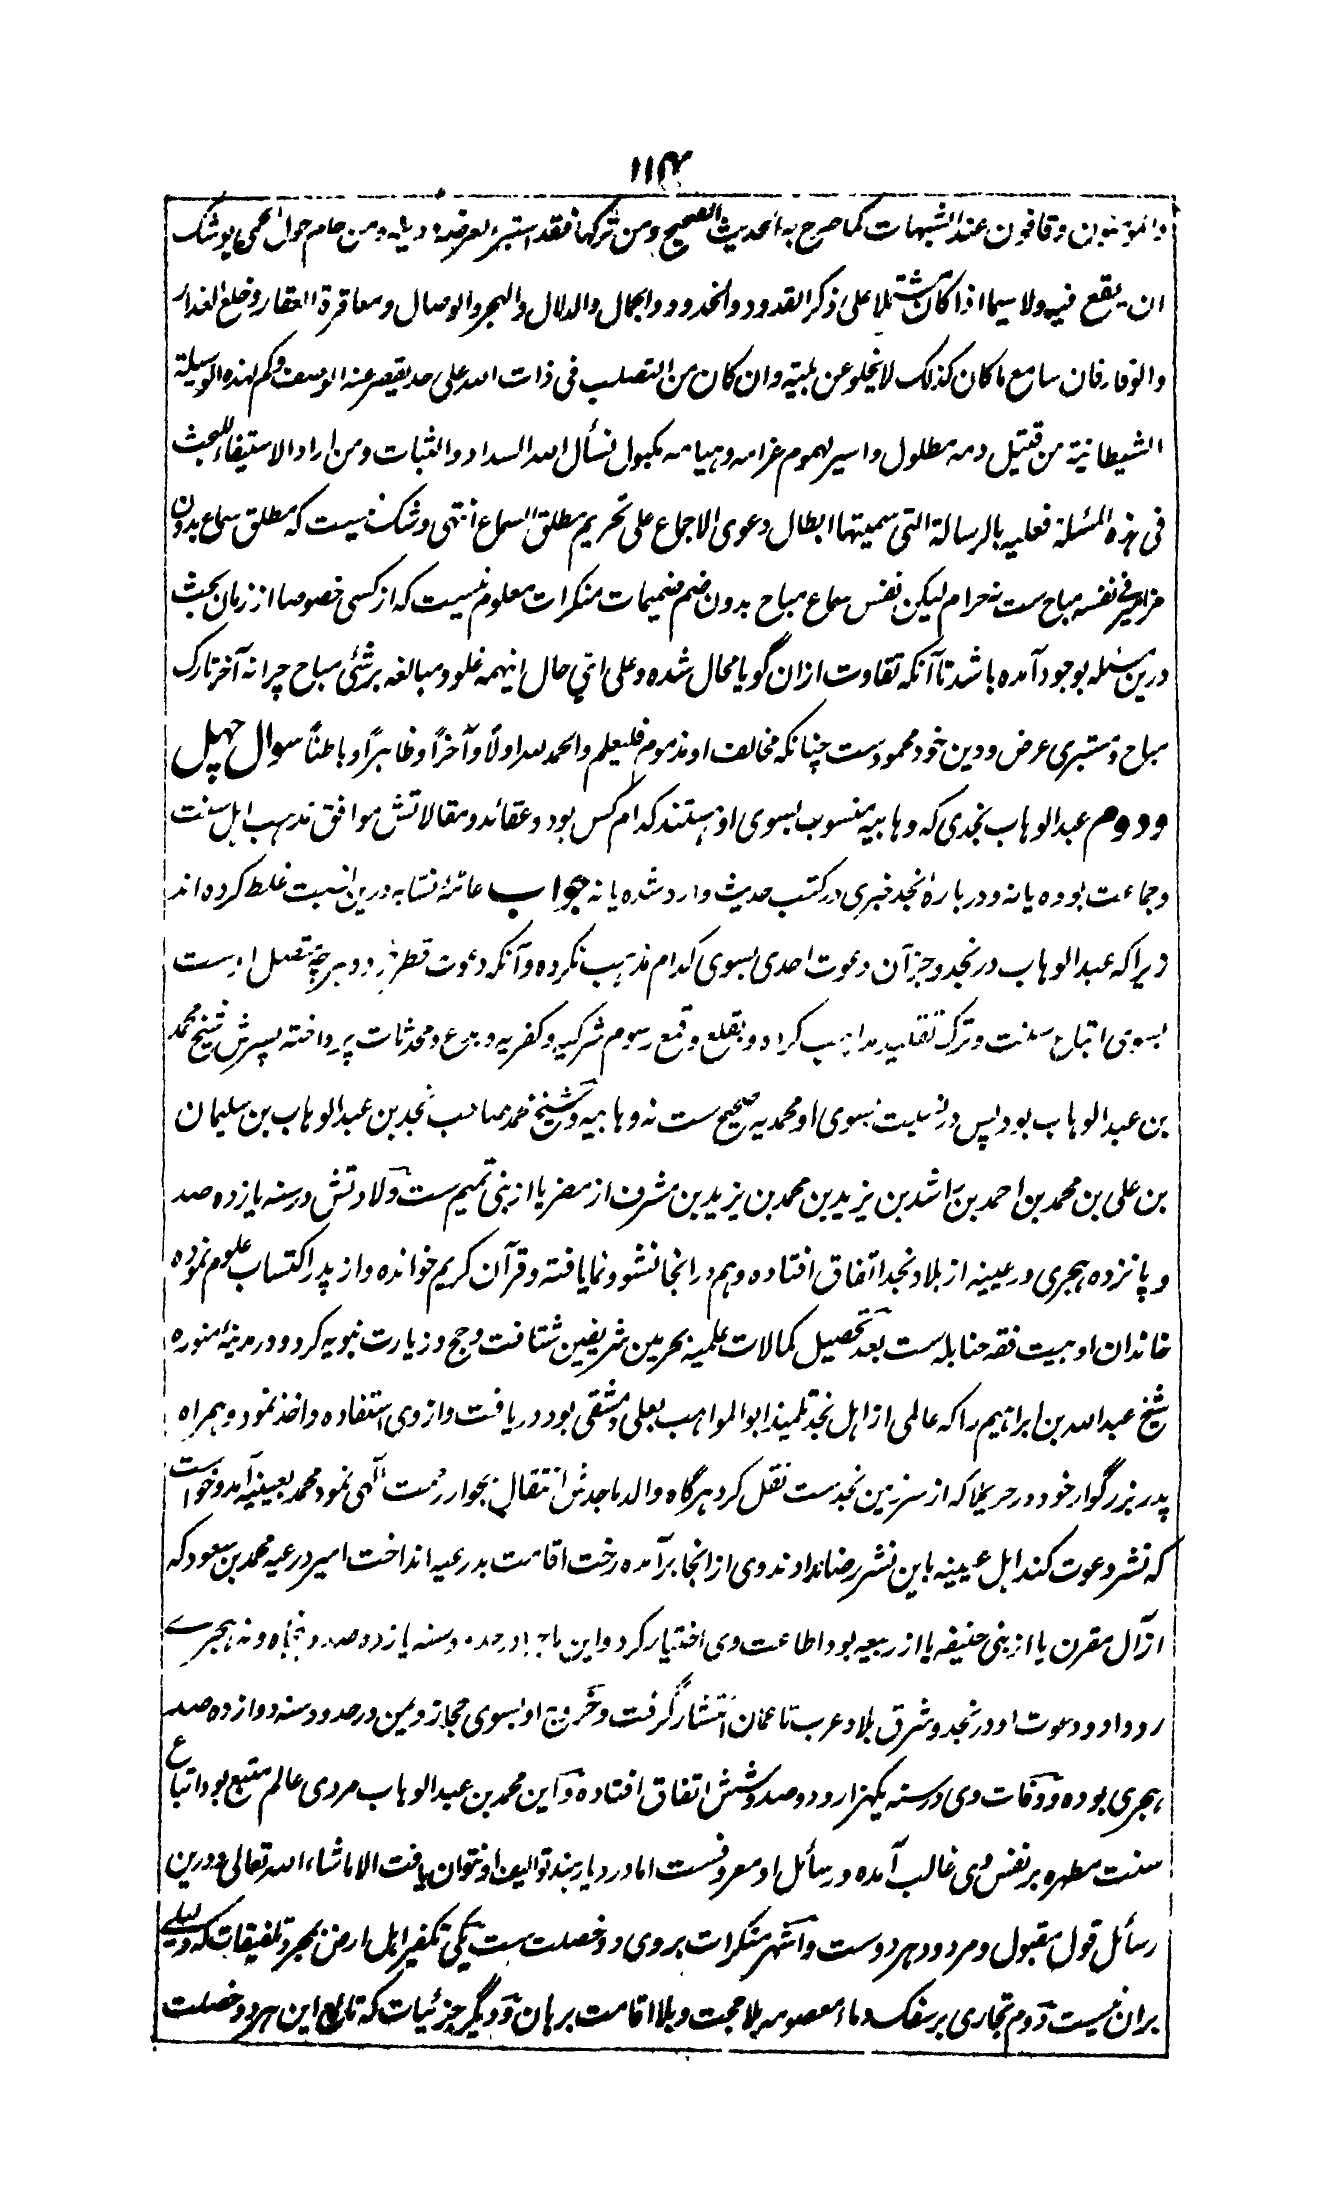 ۱۱۴
والمؤمنون وقافون عند الشبهات كما صرح به الحديث الصحيح ومن تركها فقد استبرء لعرضه ودينه ومن حام حول الحمى يوشك
ان يقع فيه ولا سيما اذا كان مشتملا على ذكر القدود والخدود والجمال والدلال والهجر والوصال ومعاقرة العقار وخلع العذار
والوقار فان سامع ما كان كذلك لا يخلو عن بلية وان كان من التصلب فى ذات الله على حد يقصر عنه الوصف وكم لهذه الوسيلة
الشيطانية من قتيل دمه مطلول واسير لهموم غرامه وهيامه مكبول نسأل الله السداد والثبات ومن اراد الاستيفاء للبحث
فى هذه المسئلة فعليه بالرسالة التى سميتها ابطال دعوى الاجماع على تحريم مطلق السماع انتهى وشك نيست که مطلق سماع بدون
مزامیر فی نفسه مباح ست نه حرام لیکن نفس سماع مباح بدون ضم ضمیمات منکرات معلوم نیست که از کسی خصوصا از زمان بحث
درین مسئله بوجود آمده باشد تا آنکه تفاوت ازان گویا محال شده وعلی ای حال اینهمه غلو ومبالغه بر شئی مباح چرا نه آخر تارک
مباح ومستبری عرض ودین خود محمودست چنانکه مخالف او مذموم فلیعلم والحمد لله اولاً وآخراً وظاهراً وباطناً سوال چهل
ودوم عبدالوهاب نجدی که وهابیه منسوب بسوی او هستند کدام کس بود وعقائد ومقالاتش موافق مذهب اهل سنت
وجماعت بوده یا نه ودربارهٔ نجد خبری در کتب حدیث وارد شده یا نه جواب عامهٔ نسابه درین نسبت غلط کرده اند
زیرا که عبدالوهاب در نجد وجز آن دعوت احدی بسوی کدام مذهب نکرده وآنکه دعوت قطر نجد وهرچه متصل اوست
بسوی اتباع سنت وترک تقلید مذاهب کرد وبقلع وقمع رسوم شرکیه وکفریه وبدع ومحدثات پرداخته پسرش شیخ محمد
بن عبدالوهاب بود پس در نسبت بسوی او محمدیه صحیح ست نه وهابیه وشیخ محمد صاحب نجد بن عبدالوهاب بن سلیمان
بن علی بن محمد بن احمد بن راشد بن یزید بن محمد بن یزید بن مشرف از مضر یا از بنی تمیم ست ولادتش در سنه یازده صد
وپانزده هجری در عیینه از بلاد نجد اتفاق افتاده وهم درانجا نشو ونما یافته وقرآن کریم خوانده واز پدر اکتساب علوم نموده
خاندان او بیت فقه حنابله است بعد تحصیل کمالات علمیه بحرمین شریفین شتافت وحج وزیارت نبویه کرد ودر مدینهٔ منوره
شیخ عبدالله بن ابراهیم را که عالمی از اهل نجد تلمیذ ابوالمواهب بعلی دمشقی بود دریافت وازوی استفاده واخذ نمود وهمراه
پدر بزرگوار خود در حریملا که از سرزمین نجدست نقل کرد هرگاه والد ماجدش انتقال بجوار رحمت الهی نمود محمد بعیینه آمد وخواست
که نشر دعوت کند اهل عیینه باین نشر رضا ندادند وی ازانجا برآمده رخت اقامت بدرعیه انداخت امیر درعیه محمد بن سعود که
از آل مقرن یا از بنی حنیفه یا از ربیعه بود اطاعت وی اختیار کرد واین ماجرا در حدود سنه یازده صد وپنجاه ونه هجری
رو داد ودعوت او در نجد وشرق بلاد عرب تا عمان انتشار گرفت وخروج او بسوی حجاز ویمن در حدود سنه دوازده صد
هجری بوده ووفات وی در سنه یکهزار ودوصد وشش اتفاق افتاده واین محمد بن عبدالوهاب مردی عالم متبع بود اتباع
سنت مطهره بر نفس وی غالب آمده ورسائل او معروفست اما در دیار هند توالیف او نتوان یافت الا ما شاء الله تعالی ودرین
رسائل قول مقبول ومردود هر دوست واشهر منکرات بروی دو خصلت ست یکی تکفیر اهل ارض بمجرد تلفیقات که دلیلی
بران نیست دوم تجاری بر سفک دماء معصومه بلا حجت وبلا اقامت برهان ودیگر جزئیات که تابع این هر دو خصلت